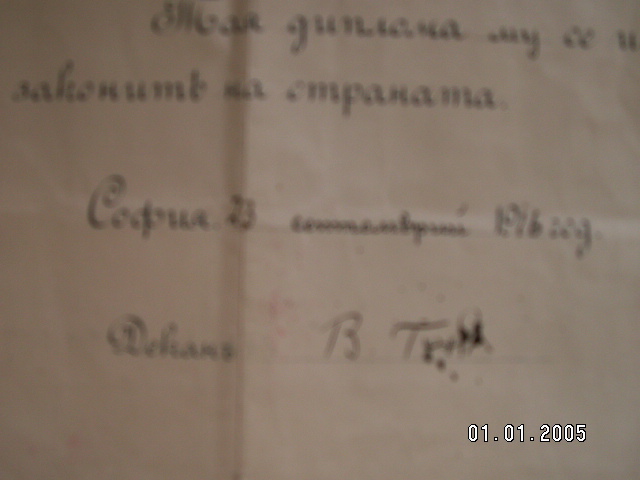 Тая диплома му се и
законитѣ на страната.
София. 23 септемврий 1916 год.
Деканъ В
01.01.2005